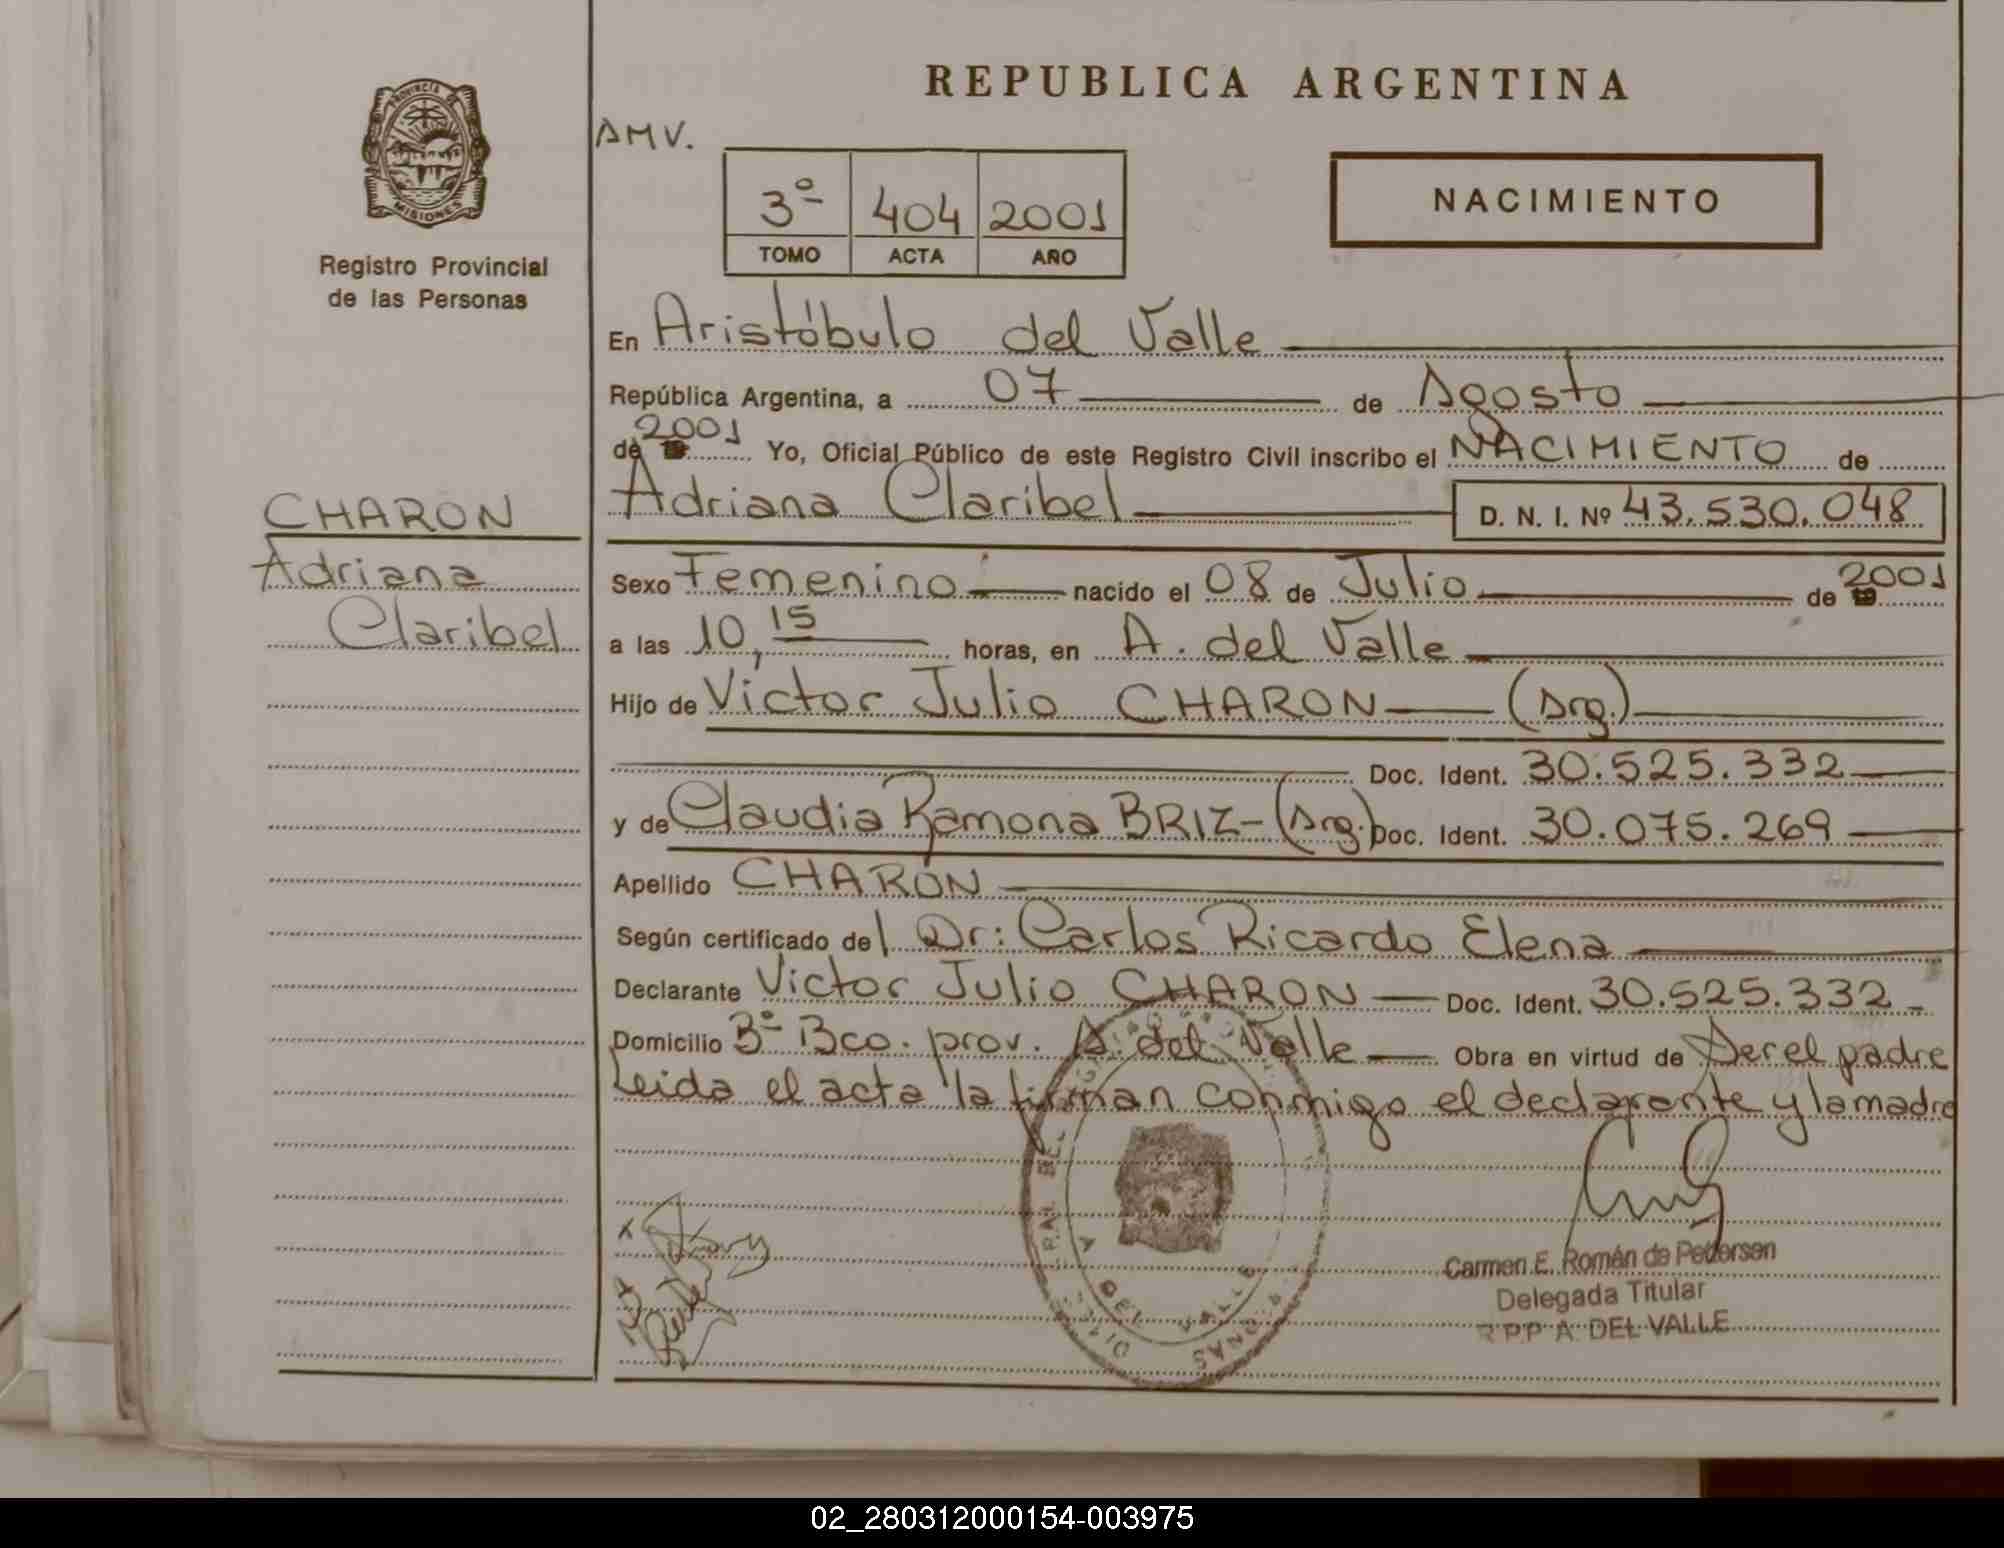 PROVINCIA DE
MISIONES
Registro Provincial
de las Personas
CHARON
Adriana
Claribel
REPUBLICA ARGENTINA
AMV.
3º 404 2001
TOMO ACTA AÑO
NACIMIENTO
En Aristóbulo del Valle
República Argentina, a 07 de Agosto
de 2001 Yo, Oficial Público de este Registro Civil inscribo el NACIMIENTO de
Adriana Claribel D. N. I. Nº 43.530.048
Sexo Femenino nacido el 08 de Julio de 2001
a las 10,15 horas, en A. del Valle
Hijo de Victor Julio CHARON (Arg.)
Doc. Ident. 30.525.332
y de Claudia Ramona BRIZ - (Arg.) Doc. Ident. 30.075.269
Apellido CHARON
Según certificado del Dr: Carlos Ricardo Elena
Declarante Victor Julio CHARON Doc. Ident. 30.525.332
Domicilio Bº Bco. prov. A. del Valle Obra en virtud de Ser el padre
Leida el acta la firman conmigo el declarante y la madre
A DEL VALLE
Carmen E. Román de Pedersen
Delegada Titular
R P P A. DEL VALLE
02_280312000154-003975